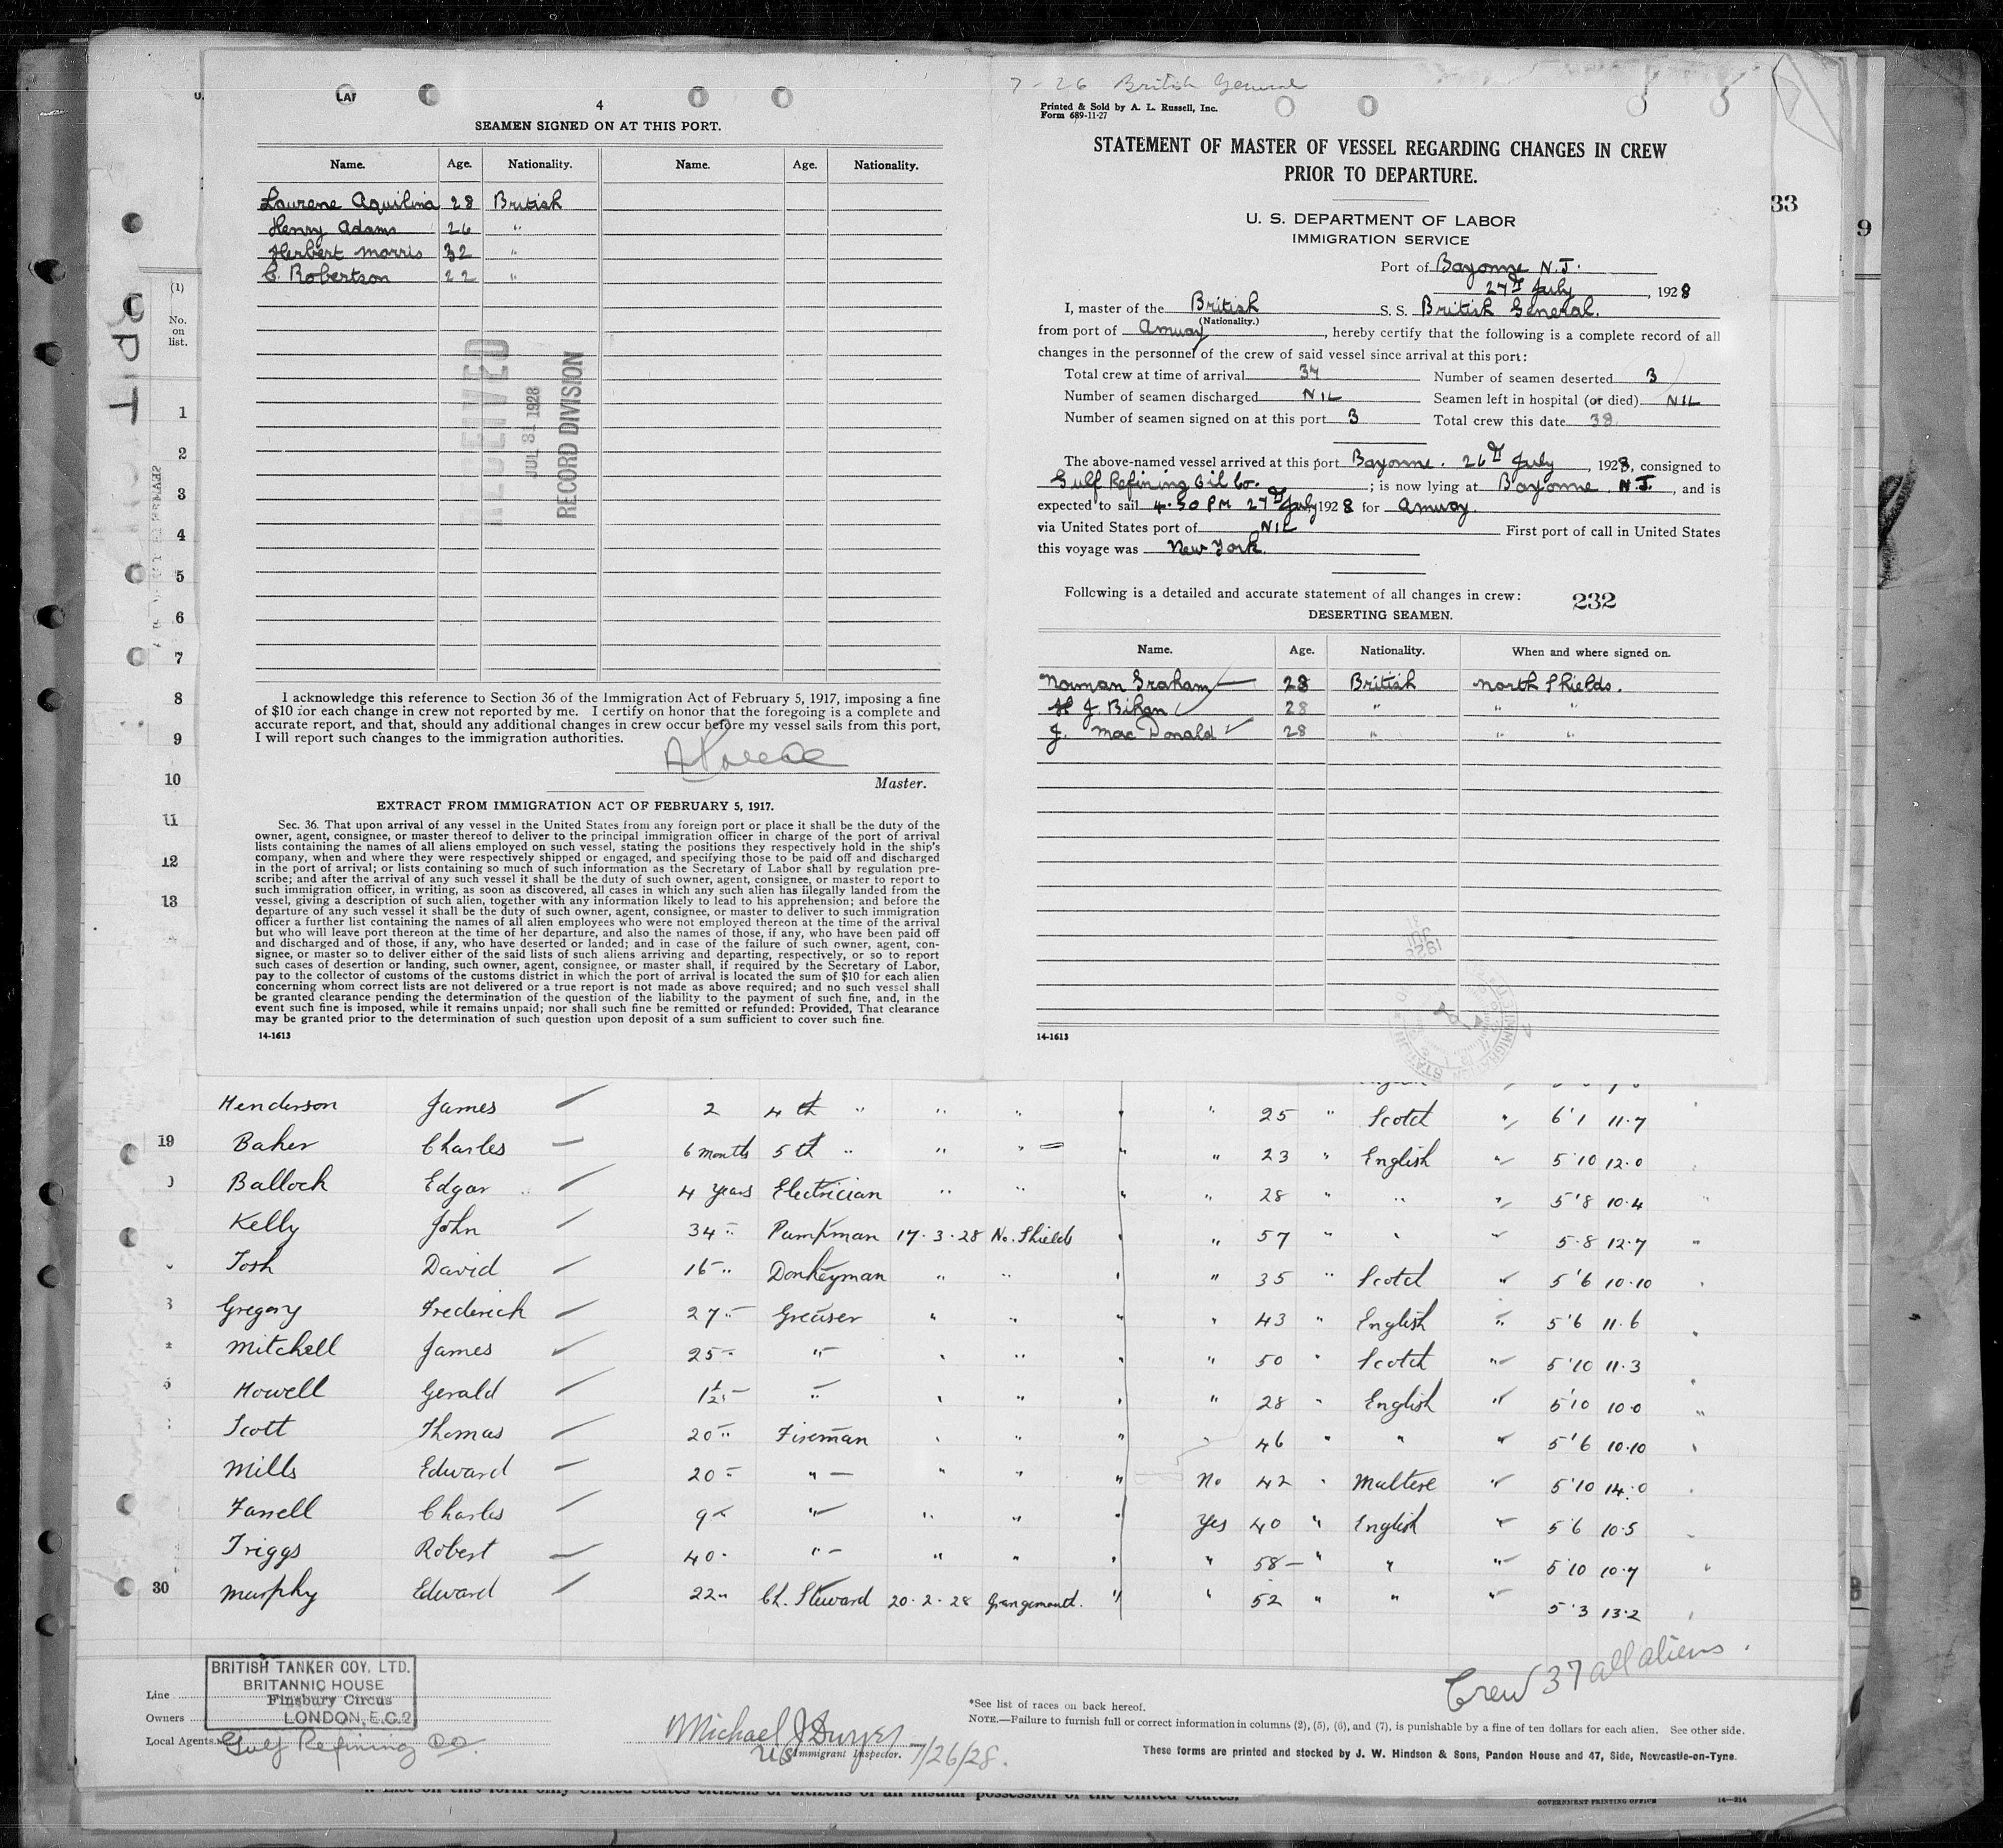 4
SEAMEN SIGNED ON AT THIS PORT.
Name. Age. Nationality. Name. Age. Nationality.
Laurene Aquilina 28 British
Henry Adams 26 "
Herbert Morris 32 "
C. Robertson 22 "
RECEIVED
JUL 31 1928
RECORD DIVISION
I acknowledge this reference to Section 36 of the Immigration Act of February 5, 1917, imposing a fine
of $10 for each change in crew not reported by me. I certify on honor that the foregoing is a complete and
accurate report, and that, should any additional changes in crew occur before my vessel sails from this port,
I will report such changes to the immigration authorities.
Master.
EXTRACT FROM IMMIGRATION ACT OF FEBRUARY 5, 1917.
Sec. 36. That upon arrival of any vessel in the United States from any foreign port or place it shall be the duty of the
owner, agent, consignee, or master thereof to deliver to the principal immigration officer in charge of the port of arrival
lists containing the names of all aliens employed on such vessel, stating the positions they respectively hold in the ship's
company, when and where they were respectively shipped or engaged, and specifying those to be paid off and discharged
in the port of arrival; or lists containing so much of such information as the Secretary of Labor shall by regulation pre-
scribe; and after the arrival of any such vessel it shall be the duty of such owner, agent, consignee, or master to report to
such immigration officer, in writing, as soon as discovered, all cases in which any such alien has illegally landed from the
vessel, giving a description of such alien, together with any information likely to lead to his apprehension; and before the
departure of any such vessel it shall be the duty of such owner, agent, consignee, or master to deliver to such immigration
officer a further list containing the names of all alien employees who were not employed thereon at the time of the arrival
but who will leave port thereon at the time of her departure, and also the names of those, if any, who have been paid off
and discharged and of those, if any, who have deserted or landed; and in case of the failure of such owner, agent, con-
signee, or master so to deliver either of the said lists of such aliens arriving and departing, respectively, or so to report
such cases of desertion or landing, such owner, agent, consignee, or master shall, if required by the Secretary of Labor,
pay to the collector of customs of the customs district in which the port of arrival is located the sum of $10 for each alien
concerning whom correct lists are not delivered or a true report is not made as above required; and no such vessel shall
be granted clearance pending the determination of the question of the liability to the payment of such fine, and, in the
event such fine is imposed, while it remains unpaid; nor shall such fine be remitted or refunded: Provided, That clearance
may be granted prior to the determination of such question upon deposit of a sum sufficient to cover such fine.
14-1613
7-26 British General
Printed & Sold by A. L. Russell, Inc.
Form 689-11-27
STATEMENT OF MASTER OF VESSEL REGARDING CHANGES IN CREW
PRIOR TO DEPARTURE.
U. S. DEPARTMENT OF LABOR
IMMIGRATION SERVICE
Port of Bayonne N.J.
27th July, 1928
I, master of the British S. S. British General.
(Nationality.)
from port of Amuay, hereby certify that the following is a complete record of all
changes in the personnel of the crew of said vessel since arrival at this port:
Total crew at time of arrival 37 Number of seamen deserted 3
Number of seamen discharged NIL Seamen left in hospital (or died) NIL
Number of seamen signed on at this port 3 Total crew this date 38
The above-named vessel arrived at this port Bayonne. 26th July, 1928, consigned to
Gulf Refining Oil Co.; is now lying at Bayonne N.J., and is
expected to sail 4.30 PM 27th July 1928 for Amuay.
via United States port of NIL First port of call in United States
this voyage was New York.
Following is a detailed and accurate statement of all changes in crew: 232
DESERTING SEAMEN.
Name. Age. Nationality. When and where signed on.
Norman Graham 28 British North Shields.
H J. Biken 28 " " "
J. Mac Donald 28 " " "
14-1613
33
9
(1)
No.
on
list.
1
2
3
4
5
6
7
8
9
10
11
12
13
Henderson James 2 4th " " " " 25 " Scotch " 6'1 11.7
19 Baker Charles 6 months 5th " " " " " 23 " English " 5'10 12.0
Balloch Edgar 4 years Electrician " " " " 28 " " " 5'8 10.4
Kelly John 34 " Pumpman 17.3.28 No. Shields " " 57 " " " 5.8 12.7
Tosh David 16 " Donkeyman " " " " 35 " Scotch " 5'6 10.10
Gregory Frederick 27 " Greaser " " " " 43 " English " 5'6 11.6
Mitchell James 25 " " " " " " 50 " Scotch " 5'10 11.3
Howell Gerald 1½ " " " " " " 28 " English " 5'10 10.0
Scott Thomas 20 " Fireman " " " " 46 " " " 5'6 10.10
Mills Edward 20 " " " " " No 42 " Maltese " 5'10 14.0
Farrell Charles 9 " " " " " Yes 40 " English " 5'6 10.5
Triggs Robert 40 " " " " " " 58 " " " 5'10 10.7
30 Murphy Edward 22 " Ch. Steward 20.2.28 Grangemouth. " " 52 " " " 5'3 13.2
Crew 37 all aliens.
BRITISH TANKER COY. LTD.
BRITANNIC HOUSE
Finsbury Circus
LONDON, E.C.2
Line
Owners
Local Agents Gulf Refining Co.
Michael J Dwyer
US Immigrant Inspector. 7/26/28.
*See list of races on back hereof.
NOTE.—Failure to furnish full or correct information in columns (2), (5), (6), and (7), is punishable by a fine of ten dollars for each alien. See other side.
These forms are printed and stocked by J. W. Hindson & Sons, Pandon House and 47, Side, Newcastle-on-Tyne.
GOVERNMENT PRINTING OFFICE 14-314